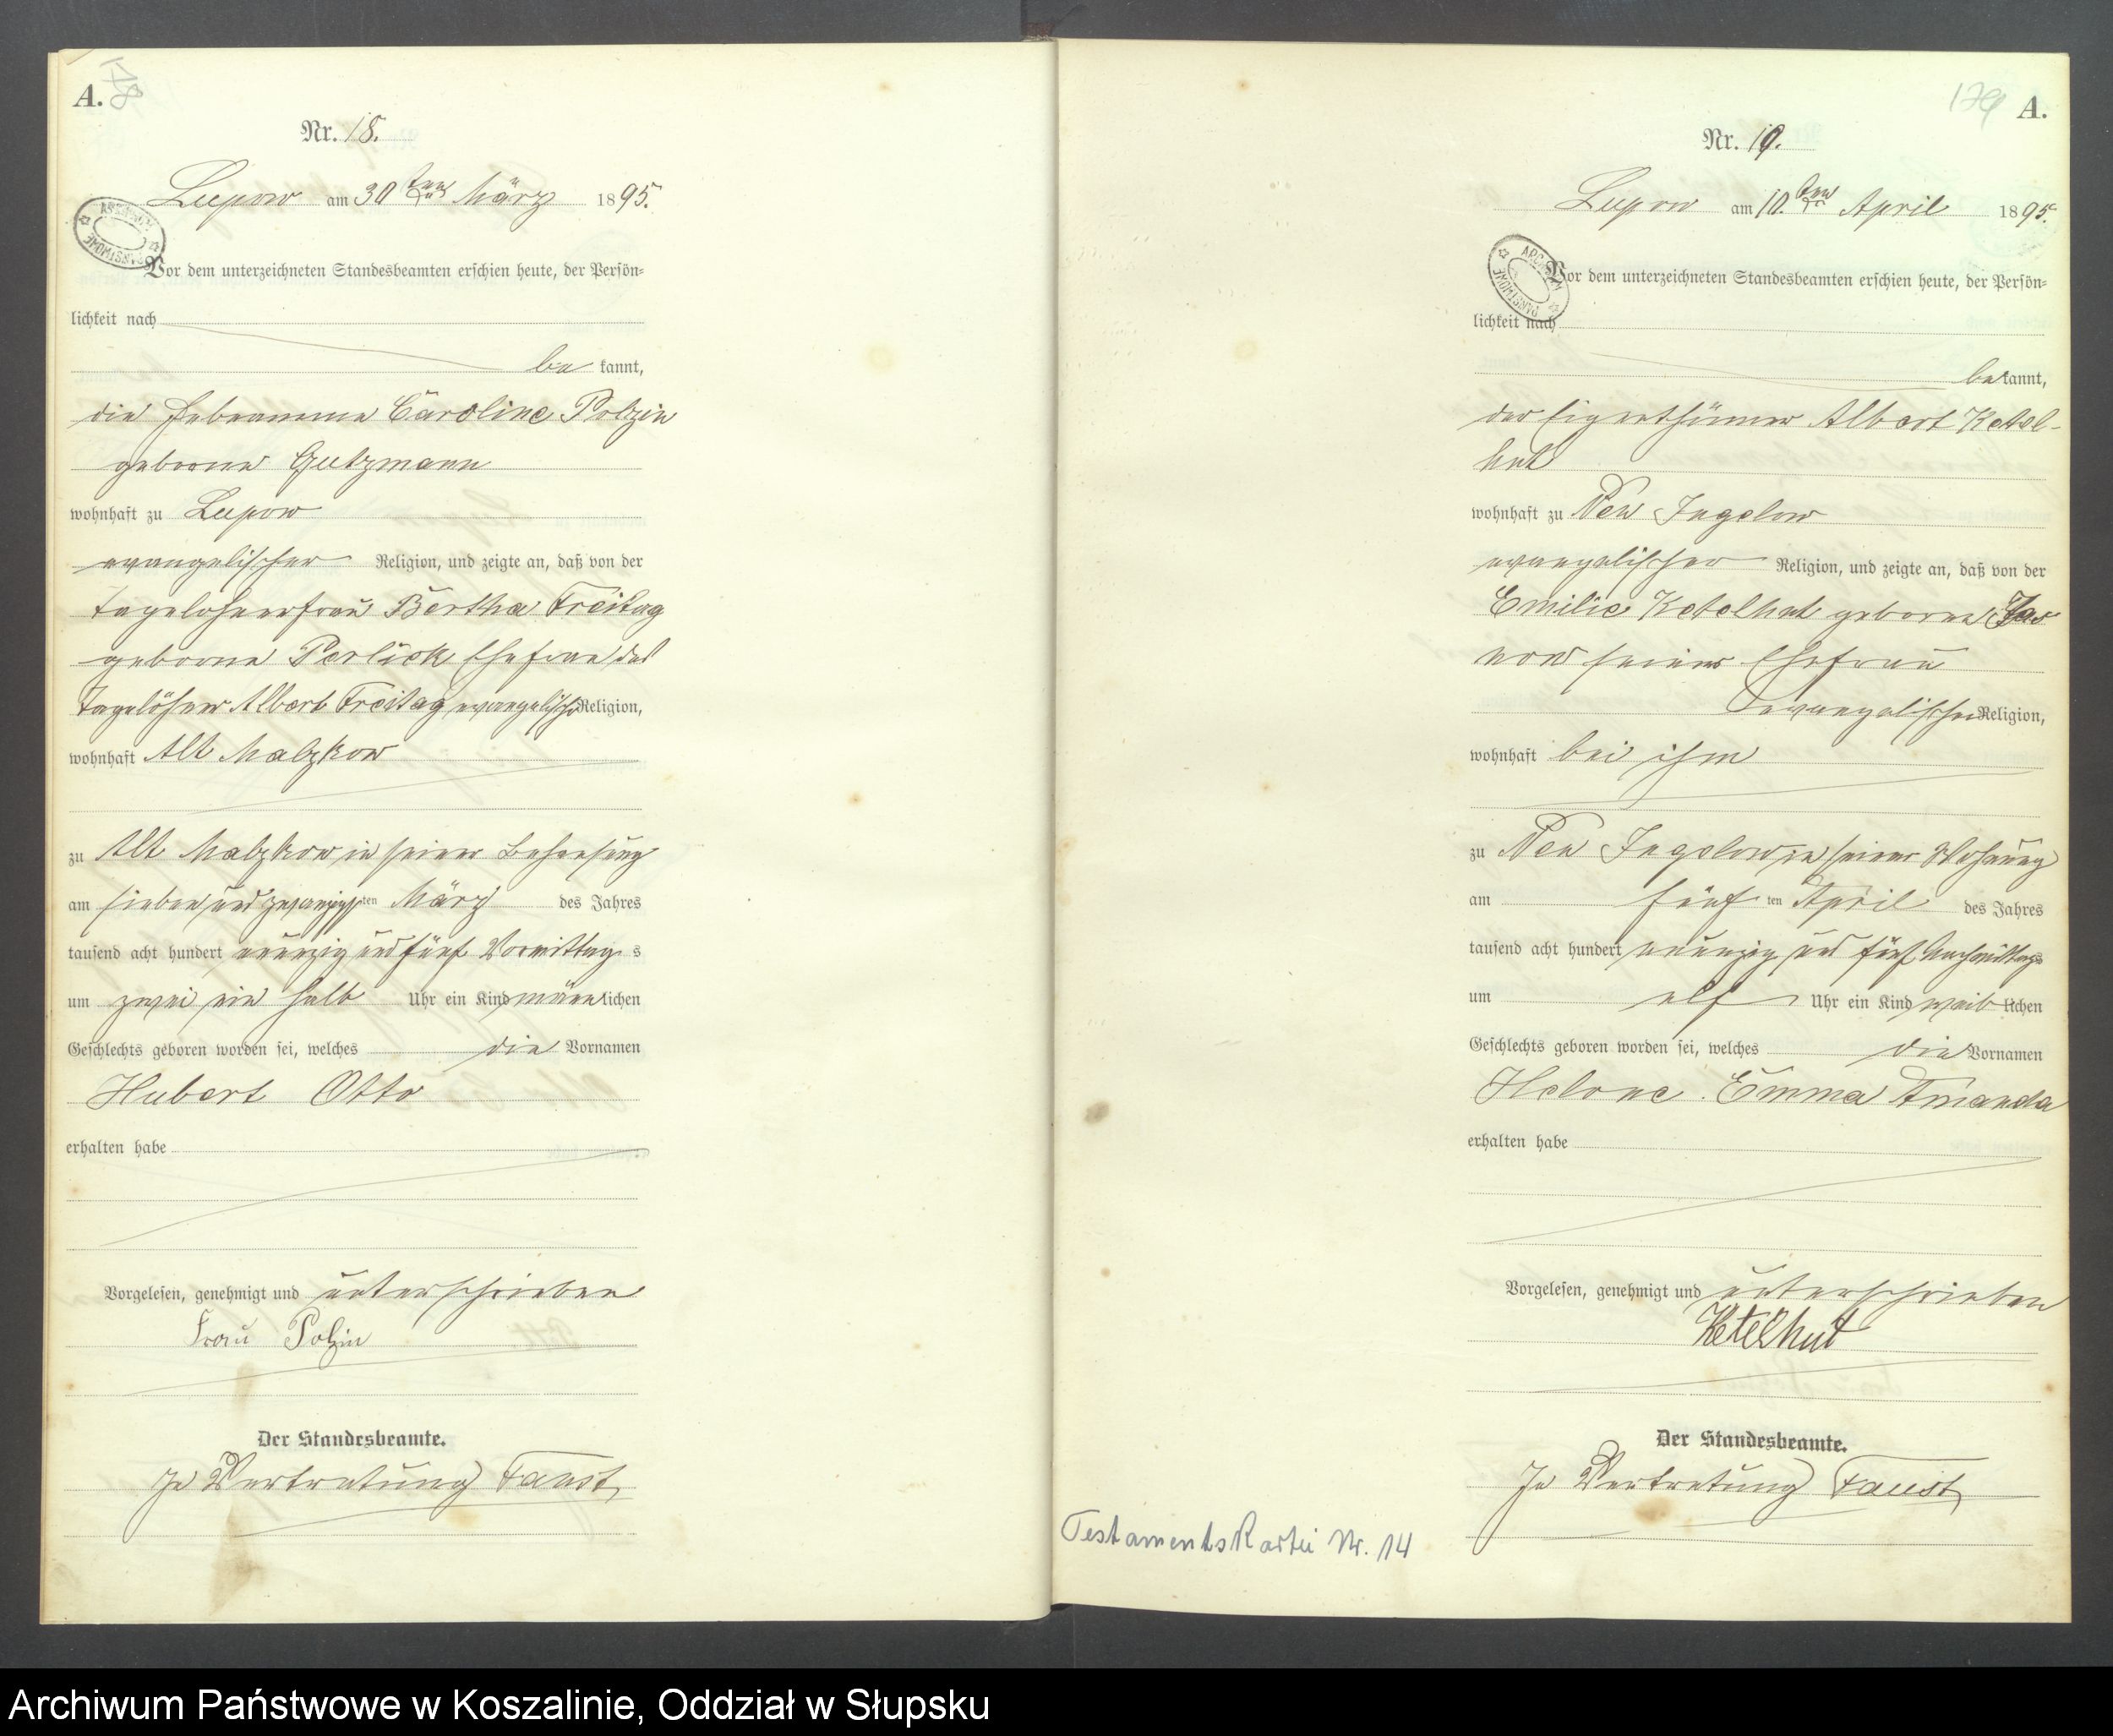 A.
178
Nr. 18.
Lupow am 30ten März 1895.
ARCHIWUM PAŃSTWOWE
Vor dem unterzeichneten Standesbeamten erschien heute, der Persön=
lichkeit nach
be kannt,
die Hebeamme Caroline Polzin
geborne Gutzmann
wohnhaft zu Lupow
evangelischer Religion, und zeigte an, daß von der
Tagelohnerfrau Bertha Freitag
geborne Perlick Ehefrau des
Tagelöhner Albert Freitag evangelischer Religion,
wohnhaft Alt Malzkow
zu Alt Malzkow in seiner Behausung
am sieben und zwanzigsten März des Jahres
tausend acht hundert neunzig und fünf Vormittag s
um zwei ein halb Uhr ein Kind männlichen
Geschlechts geboren worden sei, welches die Vornamen
Hubert Otto
erhalten habe
Vorgelesen, genehmigt und unterschrieben
Frau Polzin
Der Standesbeamte.
In Vertretung Faust
179
A.
Nr. 19.
Lupow am 10.ten April 1895.
ARCHIWUM PAŃSTWOWE
Vor dem unterzeichneten Standesbeamten erschien heute, der Persön=
lichkeit nach
bekannt,
der Eigenthümer Albert Ketel-
hut
wohnhaft zu Neu Jugelow
evangelischer Religion, und zeigte an, daß von der
Emilie Ketelhut geborne Jas
now seiner Ehefrau
evangelischer Religion,
wohnhaft bei ihm
zu Neu Jugelow in seiner Wohnung
am fünf ten April des Jahres
tausend acht hundert neunzig und fünf Nachmittags
um elf Uhr ein Kind weib lichen
Geschlechts geboren worden sei, welches die Vornamen
Helene Emma Amanda
erhalten habe
Vorgelesen, genehmigt und unterschrieben
Ketelhut
Der Standesbeamte.
In Vertretung Faust
Testamentskartei Nr. 14
Archiwum Państwowe w Koszalinie, Oddział w Słupsku